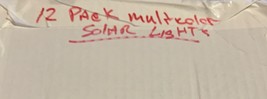 12 PAck multicolor
SolAR LigHTs